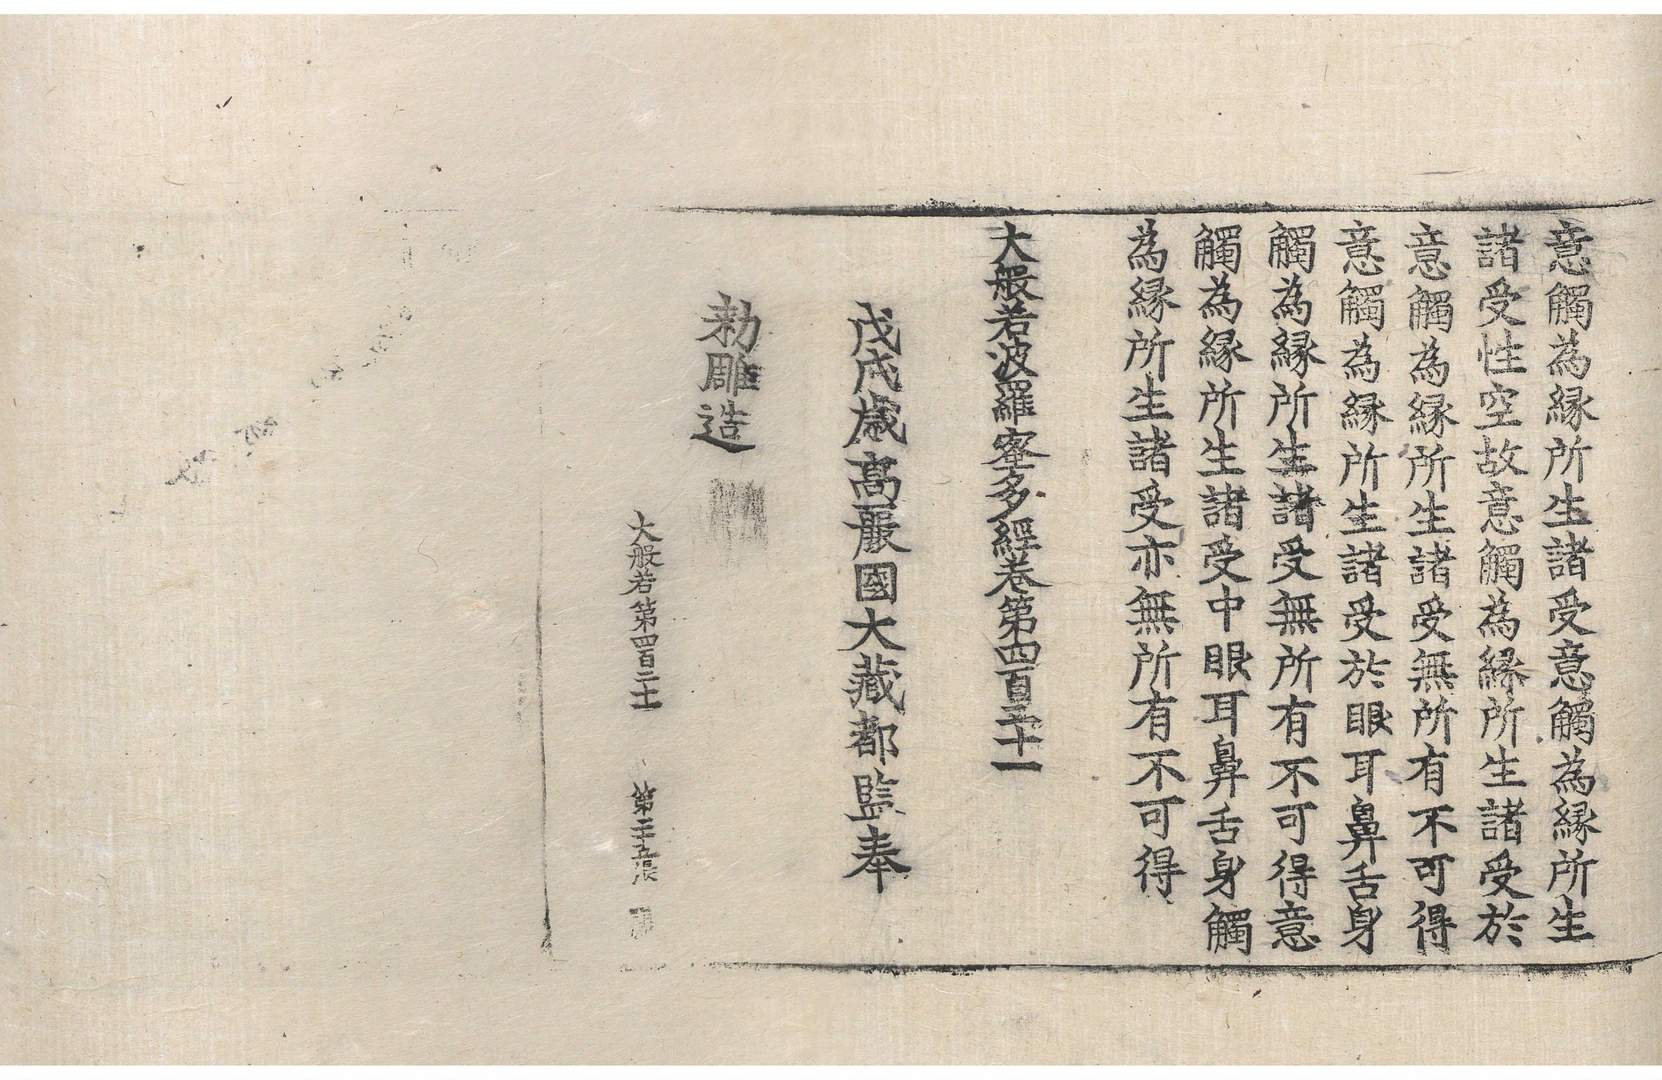 意觸為緣所生諸受意觸為緣所生
諸受性空故意觸為緣所生諸受於
意觸為緣所生諸受無所有不可得
意觸為緣所生諸受於眼耳鼻舌身
觸為緣所生諸受無所有不可得意
觸為緣所生諸受中眼耳鼻舌身觸
為緣所生諸受亦無所有不可得
大般若波羅蜜多經卷第四百三十一
戊戌歲高麗國大藏都監奉
勅雕造
大般若第四百三十一 第二十五張